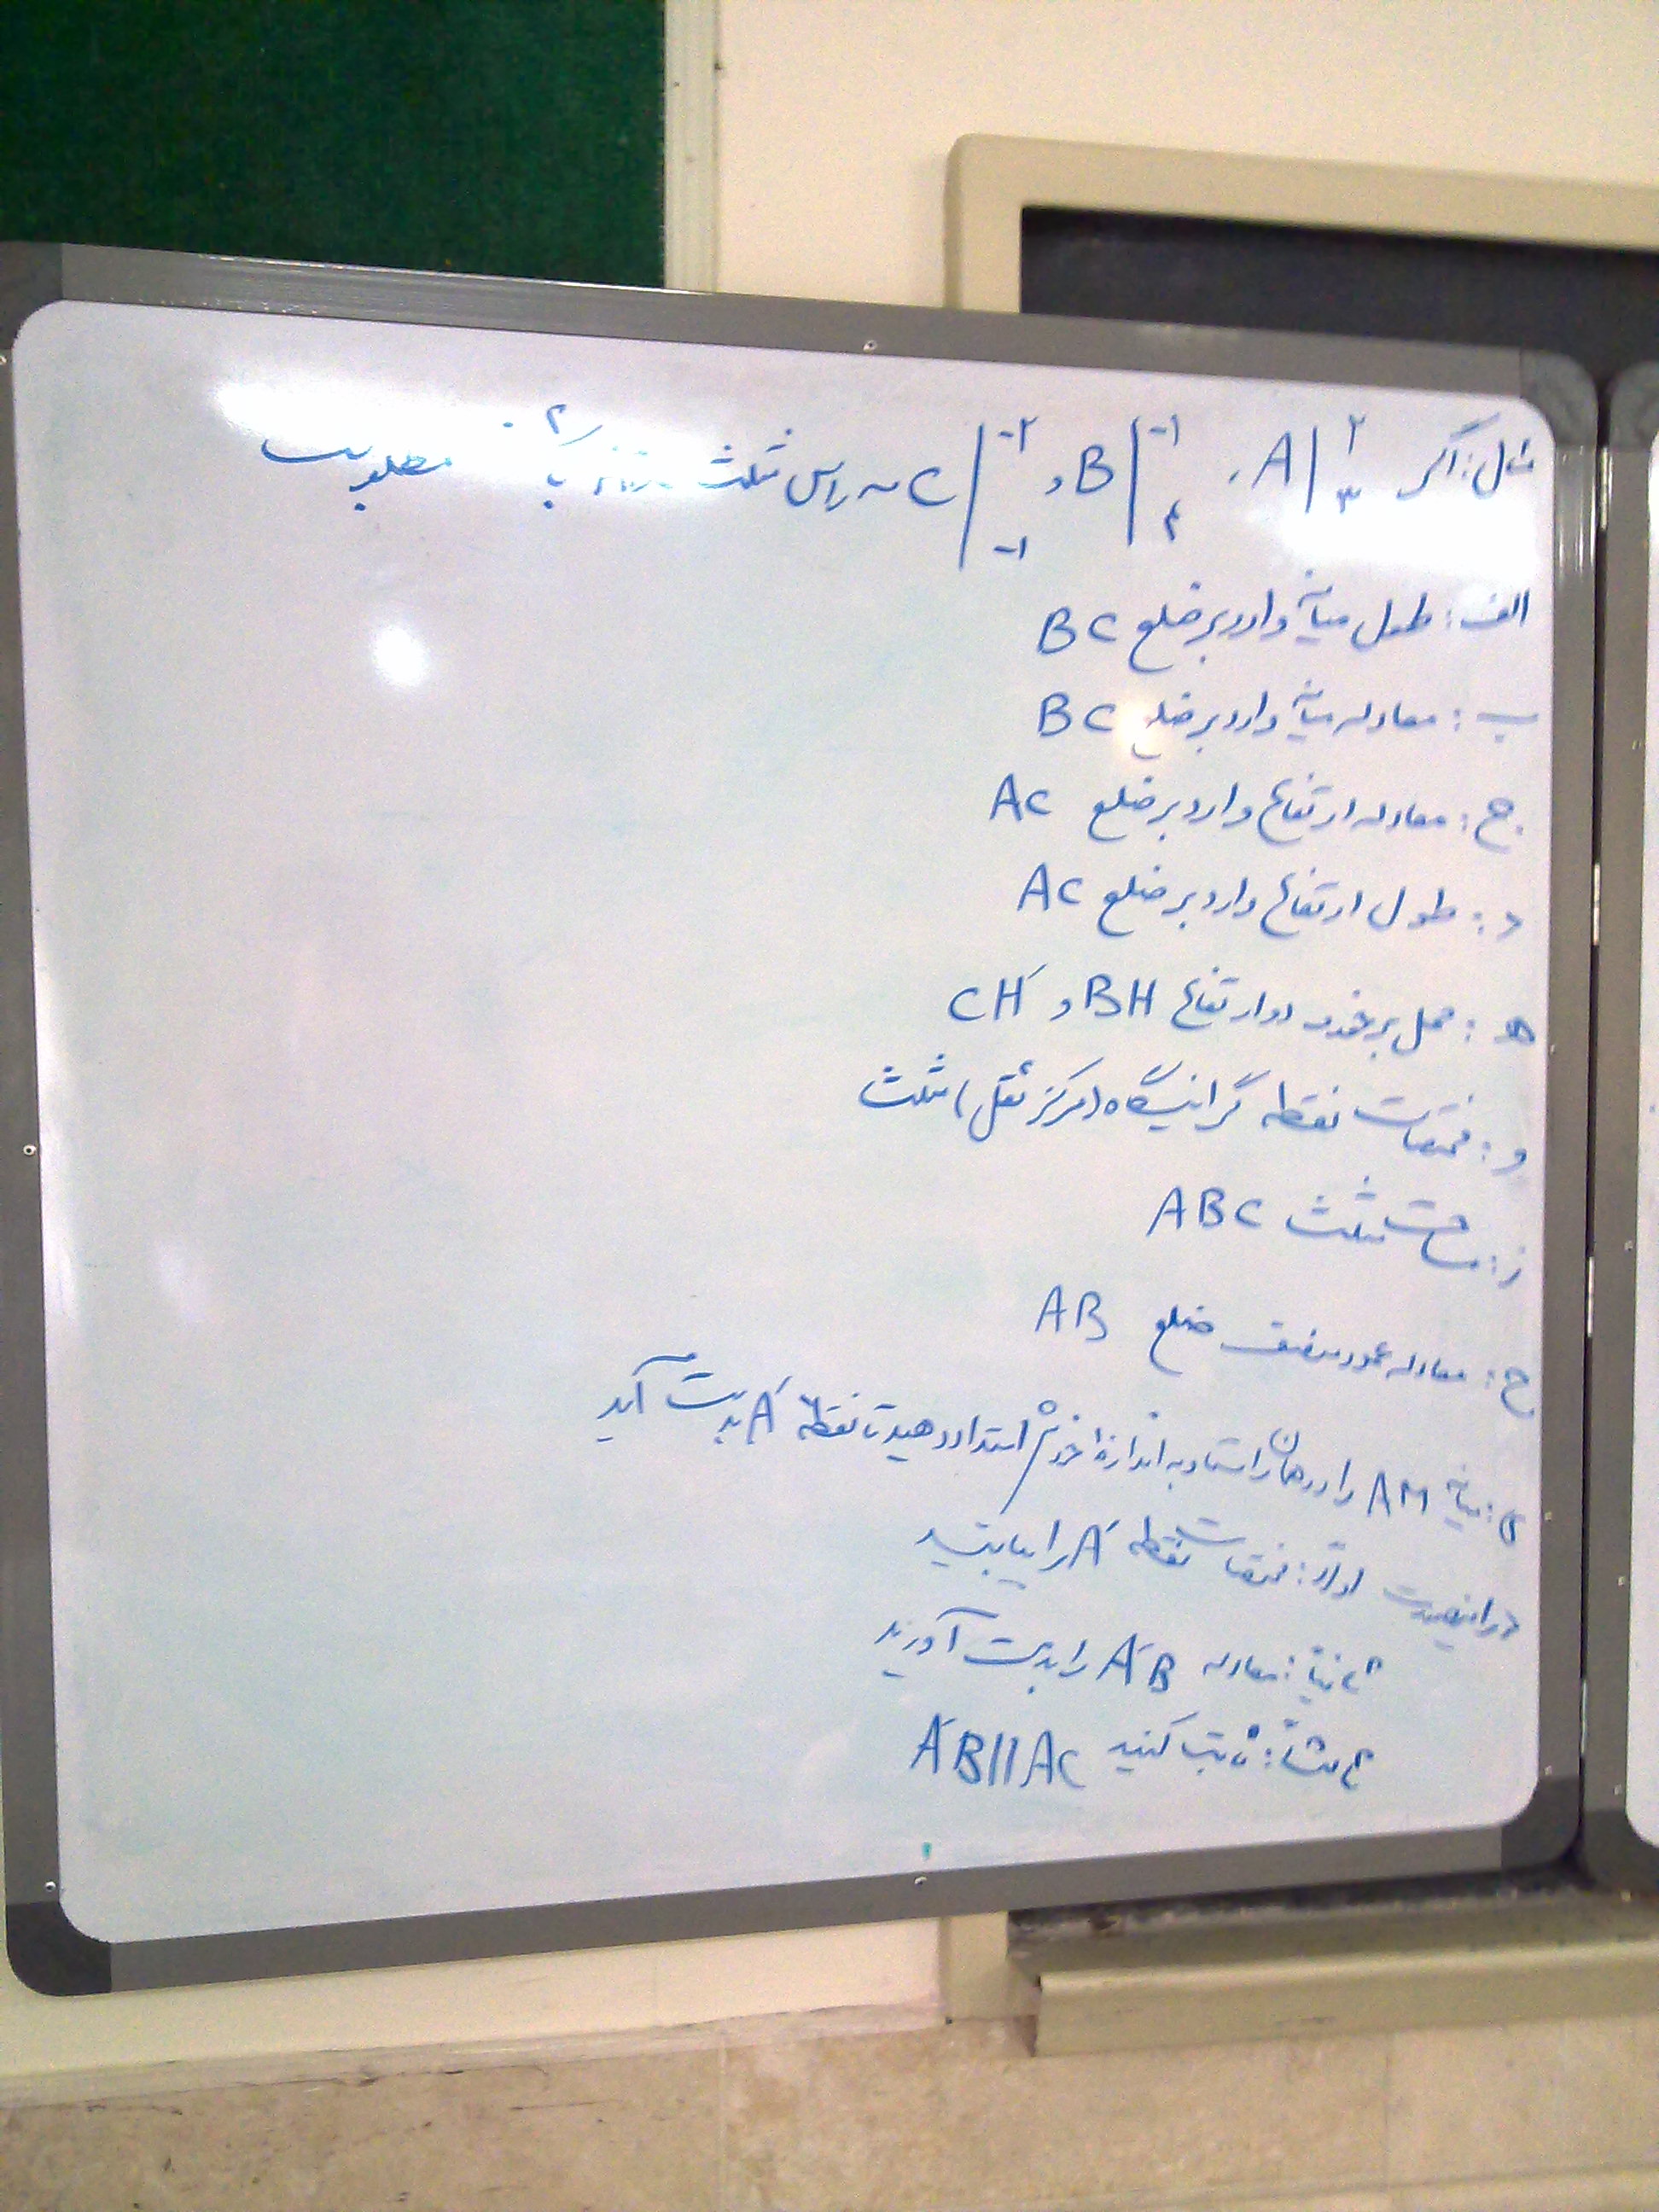 مثال: اگر A|۲ ۳ ، B|-۱ ۴ و C|-۲ -۱ سه راس مثلث باشند مطلوبست
الف: طول میانه وارد بر ضلع BC
ب: معادله میانه وارد بر ضلع BC
ج: معادله ارتفاع وارد بر ضلع AC
د: طول ارتفاع وارد بر ضلع AC
ه: محل برخورد دو ارتفاع BH و CH́
و: مختصات نقطه گرانیگاه (مرکز ثقل) مثلث
ز: مساحت مثلث ABC
ح: معادله عمود منصف ضلع AB
ی: میانه AM را در همان راستا و به اندازه خودش امتداد دهید تا نقطه Á بدست آید
در اینصورت اولاً: مختصات نقطه Á را بیابید
ثانیاً: معادله ÁB را بدست آورید
ثالثاً: ثابت کنید ÁB||AC